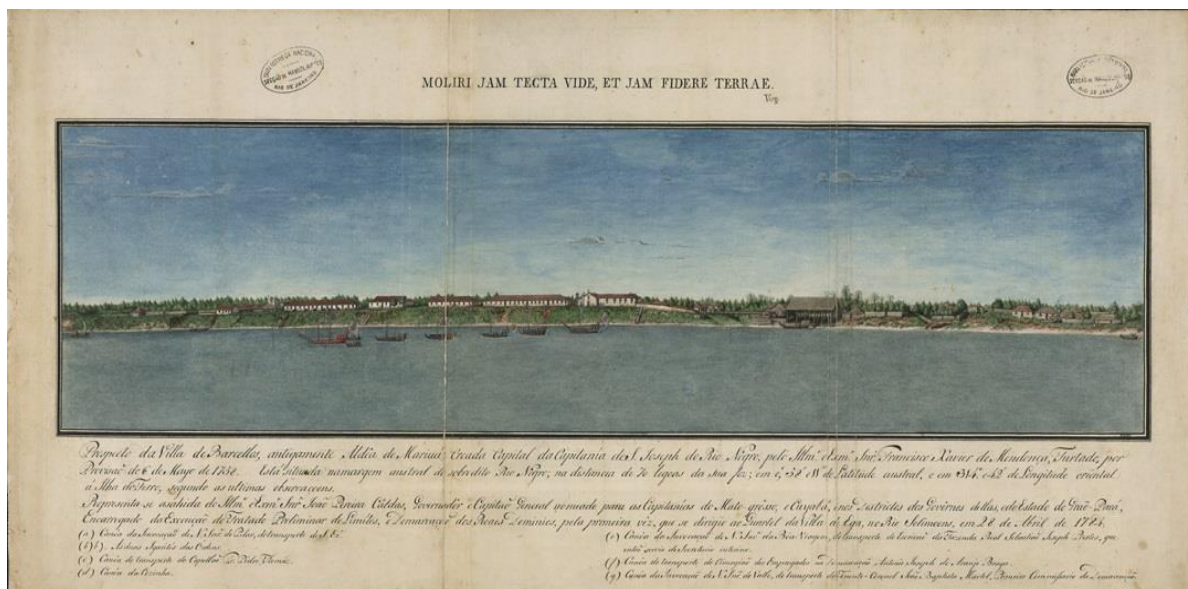 BIBLIOTHECA NACIONAL
SECÇÃO DE MANUSCRIPTOS
RIO DE JANEIRO
MOLIRI JAM TECTA VIDE, ET JAM FIDERE TERRAE.
Virg
BIBLIOTHECA NACIONAL
RIO DE JANEIRO
Prospecto da Villa de Barcellos, antigamente Aldêa de Mariuá: Creada Capital da Capitania de S. Joseph do Rio Negro, pelo Illmo e Exmo Snr Francisco Xavier de Mendonça Furtado, por
de 6 de Mayo de Está situada na margem austral do sobredito Rio Negro, na distancia de legoas da sua foz; em de Latitude austral, e em de Longitude oriental
á Ilha do Ferro, segundo as ultimas observaçoens.
Representa se a sahida do Illmo e Exmo Snr João Pereira Caldas, Governador e Capitão General nomeado para as Capitanias de Mato grosso, e Cuyabá, e nos Districtos dos Governos dellas, e do Estado do Grão Pará,
Encarregado da Execução do Tratado Preliminar de Limites, e Demarcação dos Reaes Dominios, pela primeira vez, que se dirigio ao Quartel da Villa de Ega, no Rio Solimoens, em 28 de Abril de 1784.
(a) Canôa da Invocação de N. Snrª do Pilar, do transporte de S. Exª
(b) As duas das Ordens.
(c) Canôa do transporte do Capellão
(d) Canôa da Cozinha.
(e) Canôa da Invocação de N. Snrª da Boa Viagem, do transporte do Escrivão da Fazenda Real Sebastião Joseph Prestes, que
então servia de Secretario interino.
(f) Canôa do transporte do dos Empregados na Demarcação Antonio Joseph de Araujo Braga.
(g) Canôa da Invocação de N. Snrª do transporte do Tenente Coronel João Baptista Martel, Primeiro Commissario da Demarcação.